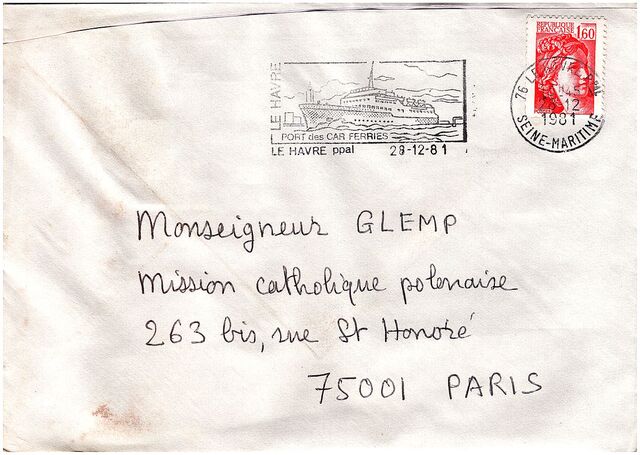 REPUBLIQUE
FRANÇAISE 1,60
LE HAVRE
PORT des CAR FERRIES
LE HAVRE ppal 28-12-81
76 LE
12
1981
SEINE-MARITIME
Monseigneur GLEMP
Mission catholique polonaise
263 bis, rue St Honoré
75001 PARIS